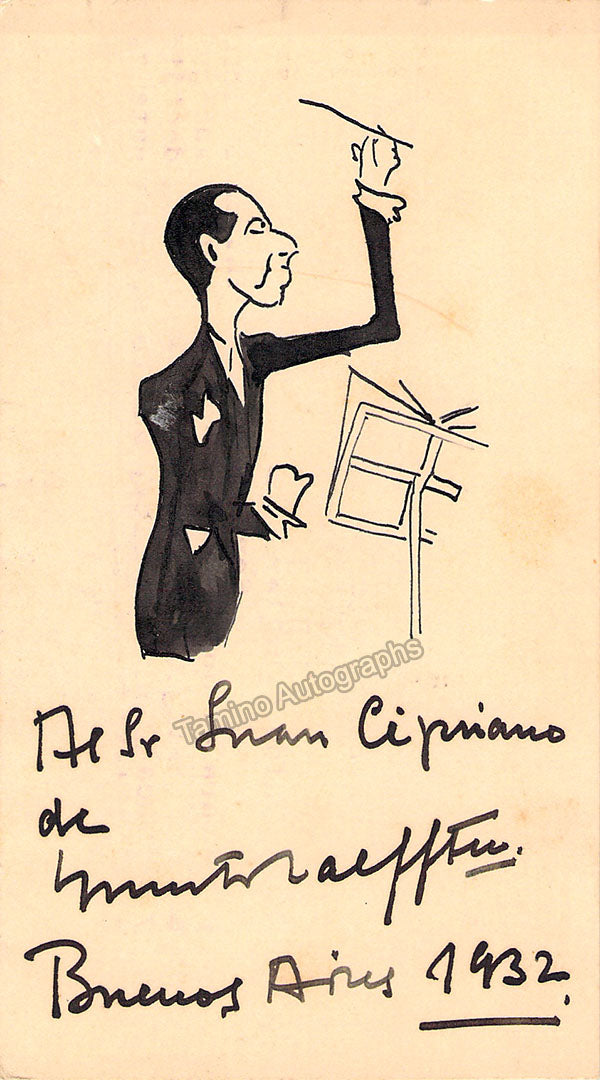 Al Sr Juan Cipriano
Tamino Autographs
de
Buenos Aires 1932.